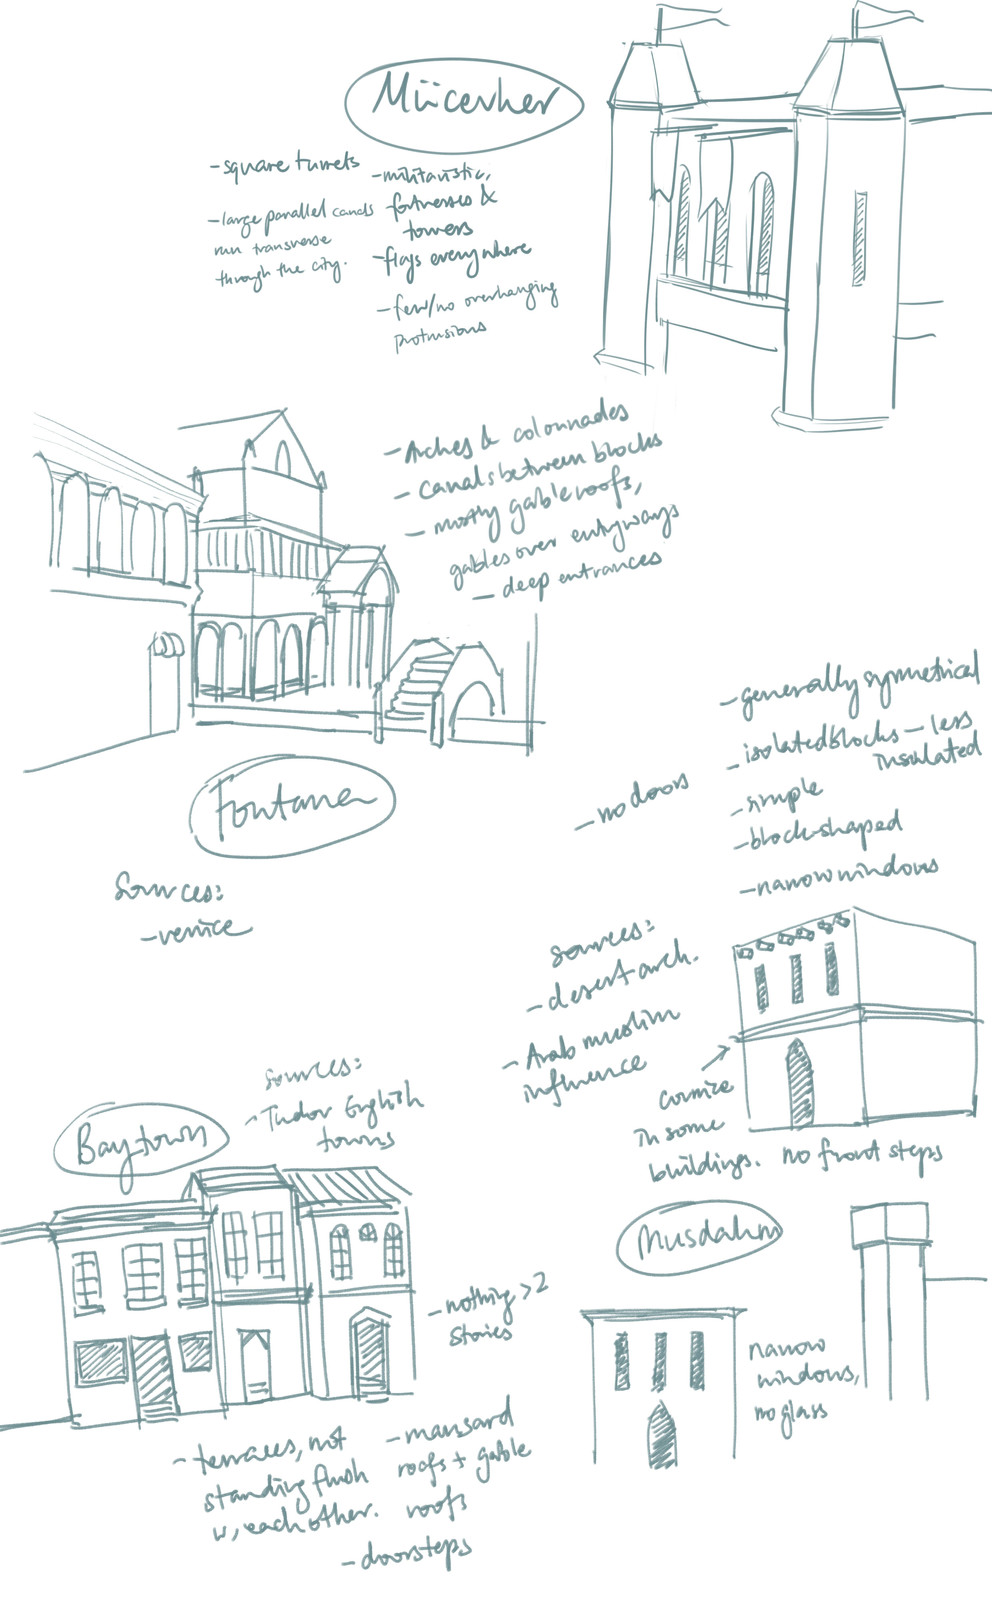 Mücerher
-square turrets
-large parallel canals
run transverse
through the city.
-militaristic,
fortresses &
towers
-flags everywhere
-few/no overhanging
protrusions
-Arches & colonnades
-canals between blocks
-mostly gable roofs,
gables over entryways
-deep entrances
Fontana
Sources:
-venice
-no doors
-generally symmetrical
-isolated blocks - less
insulated
-simple
-block-shaped
-narrow windows
sources:
-desert arch.
-Arab muslim
influence
cornice
in some
buildings.
no front steps
Musdahm
narrow
windows,
no glass
Baytown
sources:
-Tudor English
towns
-nothing >2
stories
-terraces, not
standing flush
w/ each other.
-mansard
roofs + gable
roofs
-doorsteps